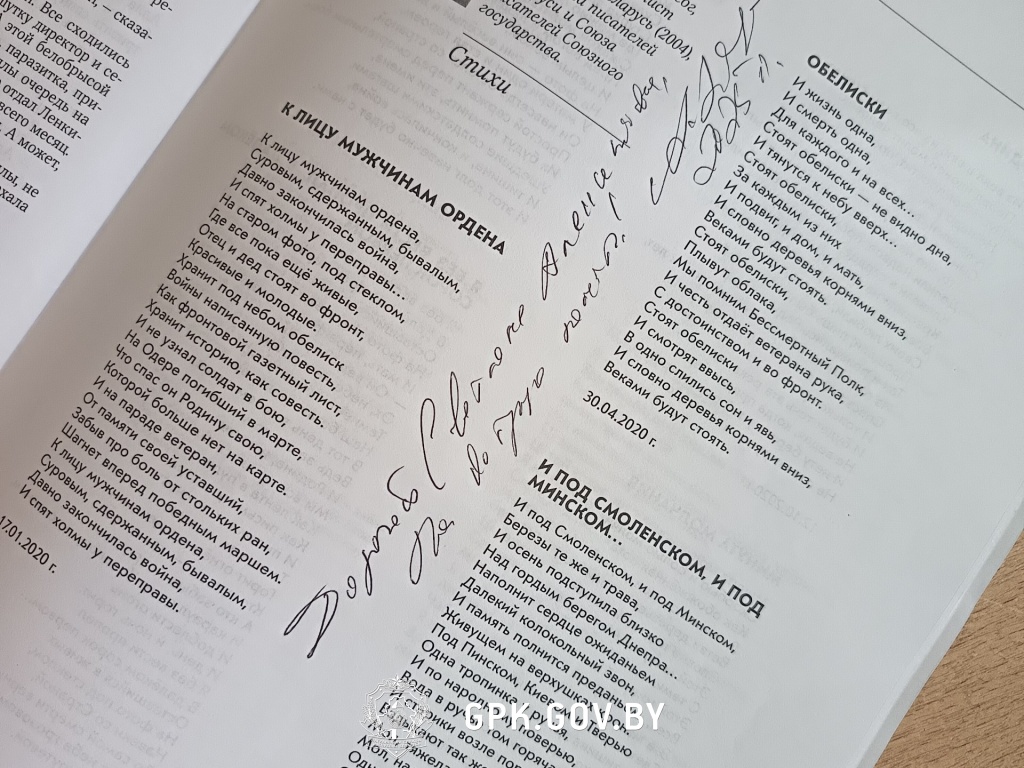 ре-
– сказа-
Все сходились
директор и се-
этой белобрысой
паразитка, при-
очередь на
отдал Ленки-
всего месяц.
А может,
не
хала
(2004),
и Союза
писателей
Союзного
государства.
Стихи
К ЛИЦУ МУЖЧИНАМ ОРДЕНА
К лицу мужчинам ордена,
Суровым, сдержанным, бывалым,
Давно закончилась война,
И спят холмы у переправы...
На старом фото, под стеклом,
Где все пока ещё живые,
Отец и дед стоят во фронт,
Красивые и молодые.
Хранит под небом обелиск
Войны написанную повесть,
Как фронтовой газетный лист,
Хранит историю, как совесть.
И не узнал солдат в бою,
На Одере погибший в марте,
Что спас он Родину свою,
Которой больше нет на карте.
И на параде ветеран,
От памяти своей уставший,
Забыв про боль от стольких ран,
Шагнет вперед победным маршем.
К лицу мужчинам ордена,
Суровым, сдержанным, бывалым,
Давно закончилась война,
И спят холмы у переправы.
17.01.2020 г.
ОБЕЛИСКИ
И жизнь одна,
И смерть одна,
Для каждого и на всех...
Стоят обелиски — не видно дна,
И тянутся к небу вверх...
Стоят обелиски,
За каждым из них
И подвиг, и дом, и мать,
И словно деревья корнями вниз,
Веками будут стоять.
Стоят обелиски,
Плывут облака,
Мы помним Бессмертный Полк,
И честь отдаёт ветерана рука,
С достоинством и во фронт.
Стоят обелиски
И смотрят ввысь,
В одно слились сон и явь,
И словно деревья корнями вниз,
Веками будут стоять.
30.04.2020 г.
И ПОД СМОЛЕНСКОМ, И ПОД
МИНСКОМ...
И под Смоленском, и под Минском,
Березы те же и трава,
И осень подступила близко
Над гордым берегом Днепра...
Наполнит сердце ожиданьем
Далекий колокольный звон,
И память полнится преданьем,
Живущем на верхушках крон.
Под Пинском, Киевом, Тверью
Одна тропинка и
И по народному поверью,
Вода в ручье потом горяча
возле
так же
Мол, на
Дорогой Светлане
На добрую
GPK.GOV.BY